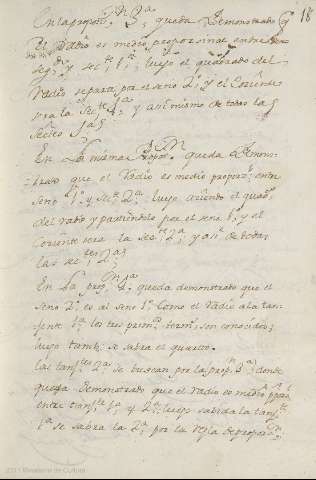 18
En la propon. 3ª, queda Demonstrado q
El Radio es medio proporsinal entre
seg.º y sec.te 1ª; luego el quadrado del
Radio se parta por el seno 2º, y el Cociente
sera la sec.te 1ª; y asi mismo de todas las
Sectes 1as
En La misma Propo.n queda Demons-
trado que el Radio es medio proporl. entre
seno 1º, y sec.te 2ª, luego aciendo el quado.
del radio y partiendole por el seno 1º, y el
Cociente sera la sec.te 2ª, y asi de todas
las sec.tes 2as
En La prop.n 2ª queda demonstrado que el
seno 2º es al seno 1º Como el Radio a la tan-
gente 1ª, los tres primos. termi. son conocidos,
luego tamb. se sabra el quarto.
Las tang.tes 2as se buscan por la prop.n donde
queda demonstrado que el radio es medio propor.
entre tang.te 1ª, y 2ª, luego sabida la tang.te
1ª se sabra la 2ª por la regla de propor.n
Ministerio de Cultura